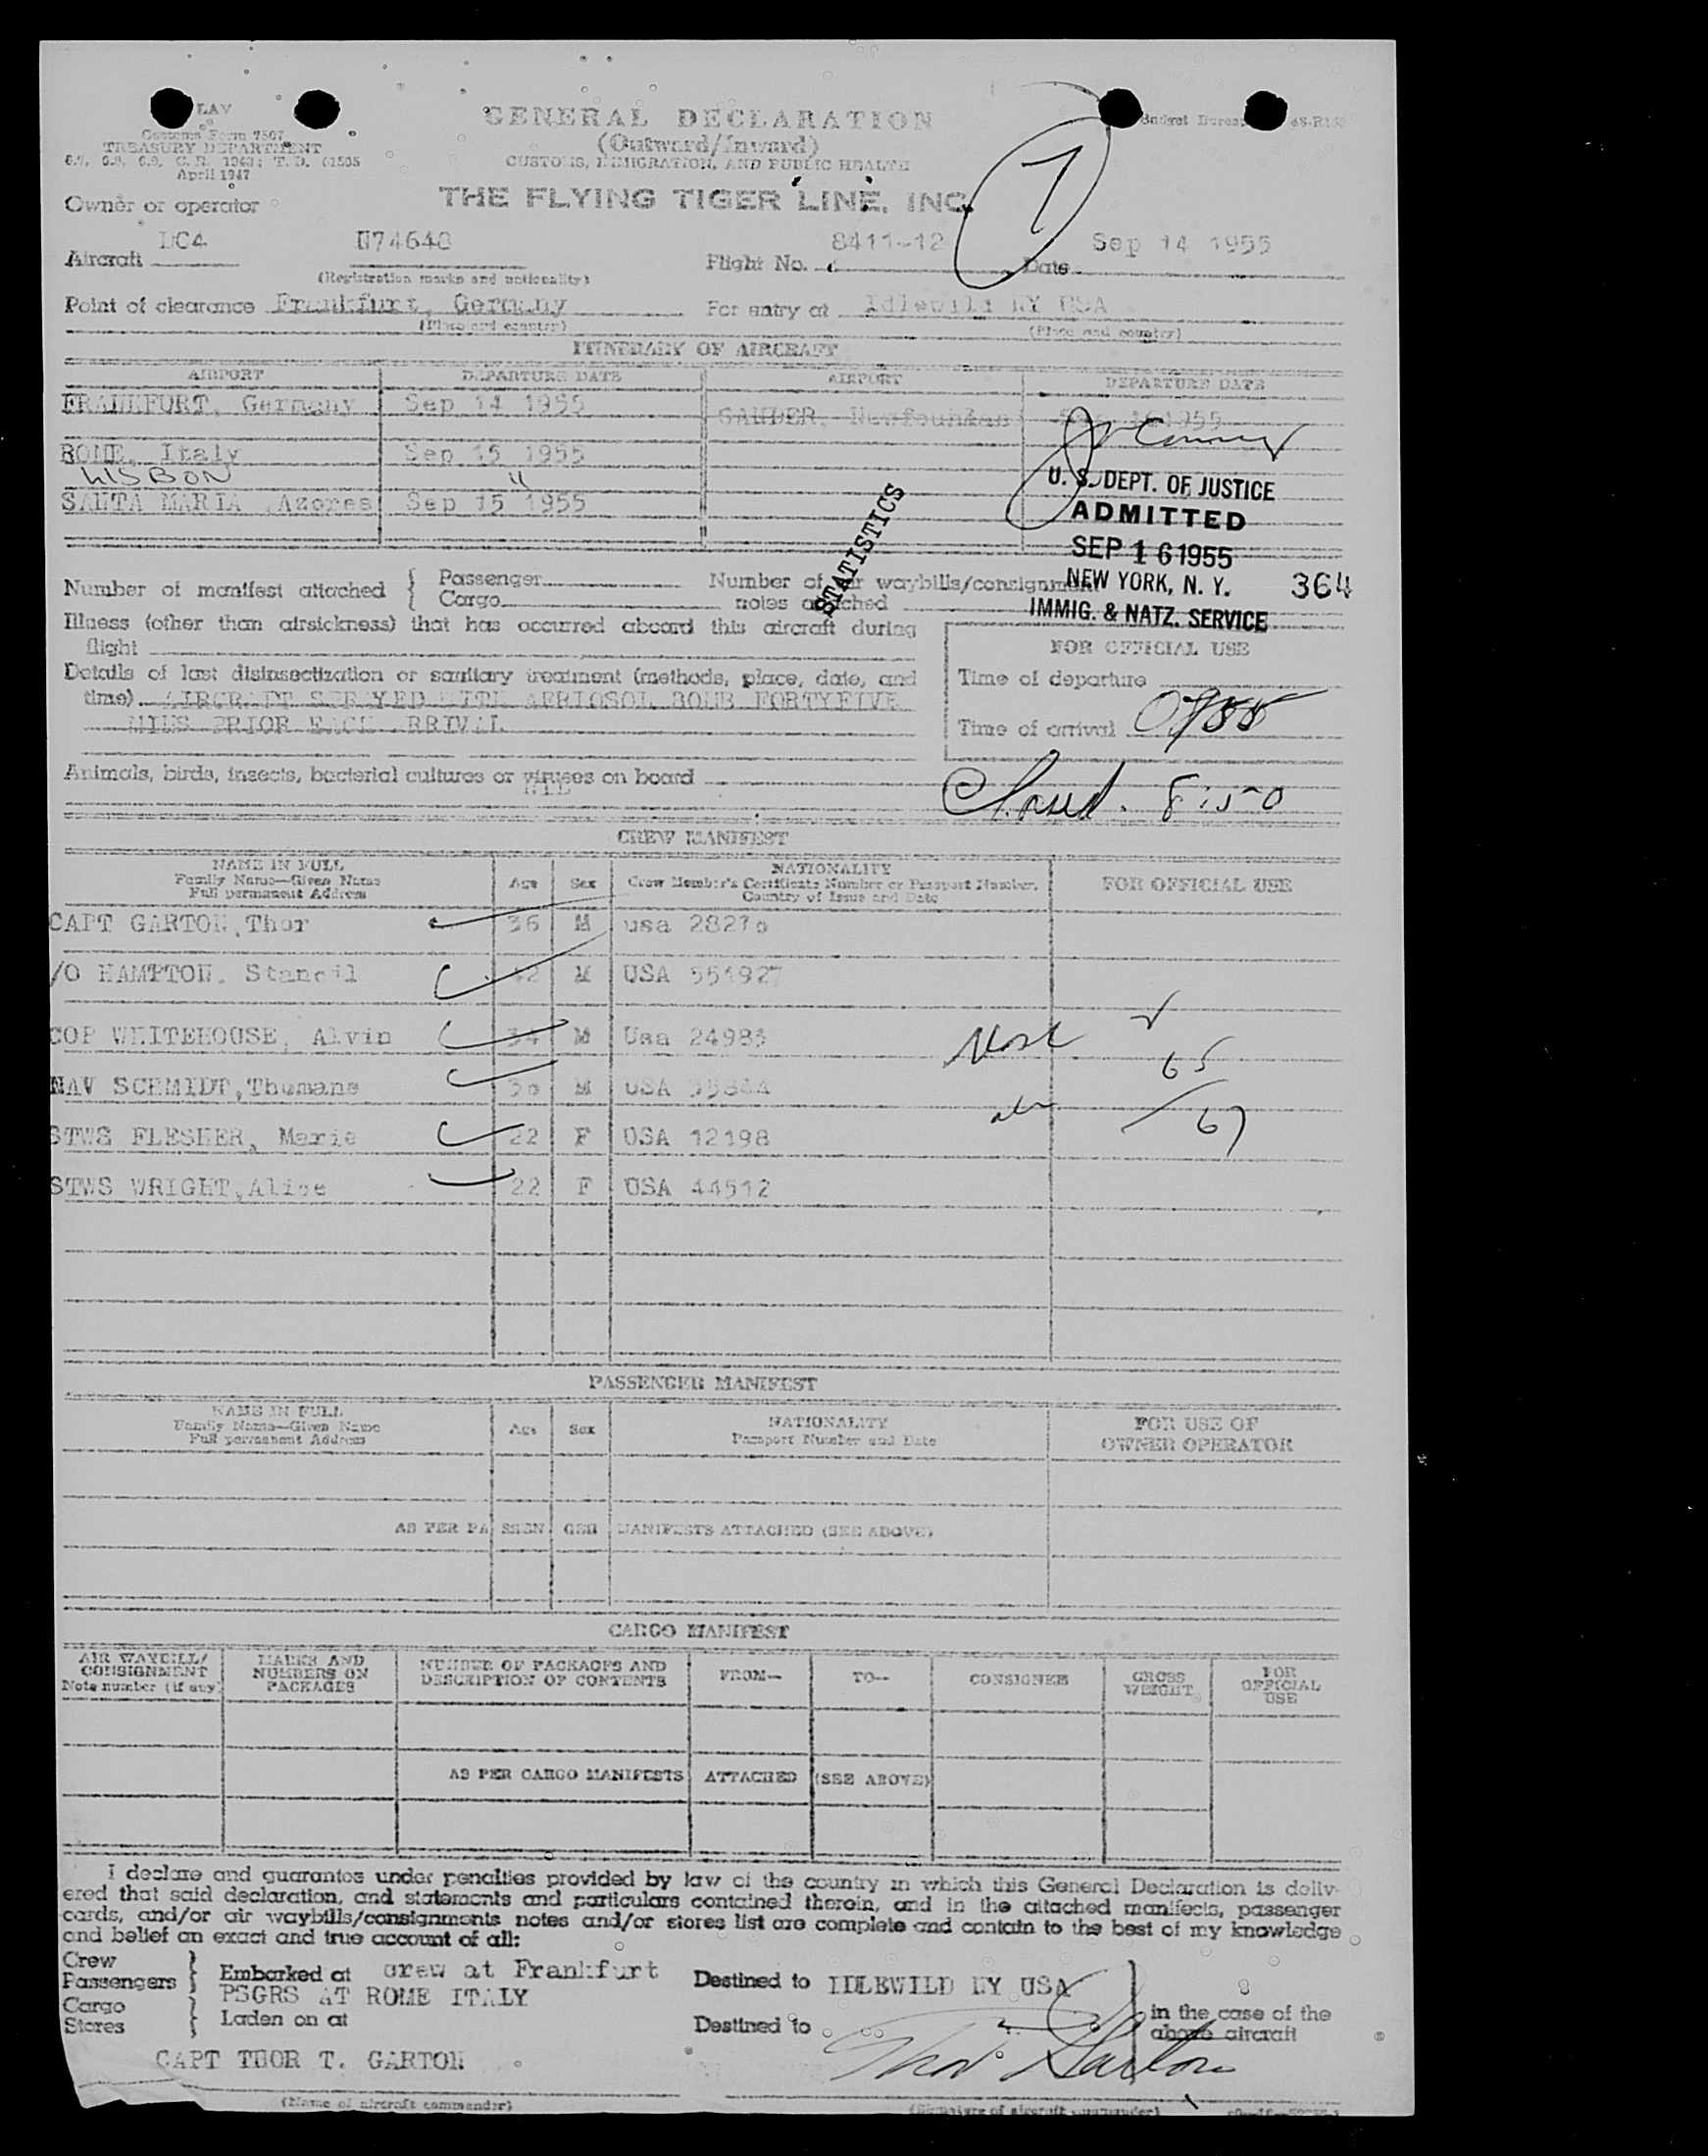 LAV
Customs Form 7507
TREASURY DEPARTMENT
April 1947
GENERAL DECLARATION
(Outward/Inward)
CUSTOMS, IMMIGRATION, AND PUBLIC HEALTH
THE FLYING TIGER LINE, INC.
7
Owner or operator
Aircraft DC4 Flight No. 8411-12 Date Sep 14 1955
(Registration marks and nationality)
Point of clearance Frankfurt, Germany For entry at Idlewild NY USA
(Place and country) (Place and country)
ITINERARY OF AIRCRAFT
AIRPORT DEPARTURE DATE AIRPORT DEPARTURE DATE
FRANKFURT, Germany Sep 14 1955 GANDER, 1955
ROME, Italy Sep 15 1955
LISBON "
SANTA MARIA ,Azores Sep 15 1955
U. S. DEPT. OF JUSTICE
ADMITTED
SEP 16 1955
NEW YORK, N. Y. 364
IMMIG. & NATZ. SERVICE
STATISTICS
Number of manifest attached { Passenger
Cargo
Number of air waybills/consignment
notes attached
Illness (other than airsickness) that has occurred aboard this aircraft during
flight
FOR OFFICIAL USE
Details of last disinsectization or sanitary treatment (methods, place, date, and
time) AIRCRAFT SPRAYED WITH AERIOSOL BOMB FORTYFIVE
MILS PRIOR EACH RRIVAL
Time of departure
Time of arrival
Animals, birds, insects, bacterial cultures or viruses on board
NIL
Closed. 8:50
CREW MANIFEST
NAME IN FULL
Family Name—Given Name
Full permanent Address
Age Sex
NATIONALITY
Crew Member's Certificate Number or Passport Number,
Country of Issue and Date
FOR OFFICIAL USE
CAPT GARTON,Thor 36 M usa
/O HAMPTON. Stancil M USA
COP WHITEHOUSE, Alvin 34 M Usa
65
NAV SCHMIDT,Thomans M USA
67
STWS FLESHER, Marie 22 F USA 12198
STWS WRIGHT,Alice 22 F USA 44512
PASSENGER MANIFEST
NAME IN FULL
Family Name—Given Name
Full permanent Address
Age Sex
NATIONALITY
Passport Number and Date
FOR USE OF
OWNER OPERATOR
AS PER PASSENGER MANIFESTS ATTACHED (SEE ABOVE)
CARGO MANIFEST
AIR WAYBILL/
CONSIGNMENT
Note number (if any)
MARKS AND
NUMBERS ON
PACKAGES
NUMBER OF PACKAGES AND
DESCRIPTION OF CONTENTS
FROM—
TO—
CONSIGNEE
GROSS
WEIGHT
FOR
OFFICIAL
USE
AS PER CARGO MANIFESTS ATTACHED (SEE ABOVE)
I declare and guarantee under penalties provided by law of the country in which this General Declaration is deliv-
ered that said declaration, and statements and particulars contained therein, and in the attached manifests, passenger
cards, and/or air waybills/consignments notes and/or stores list are complete and contain to the best of my knowledge
and belief an exact and true account of all:
Crew
Passengers } Embarked at crew at Frankfurt
PSGRS AT ROME ITALY
Destined to IDLEWILD NY USA
Cargo
Stores } Laden on at
Destined to
in the case of the
above aircraft
CAPT THOR T. GARTON
Thor Garton
(Name of aircraft commander)
(Signature of aircraft commander)